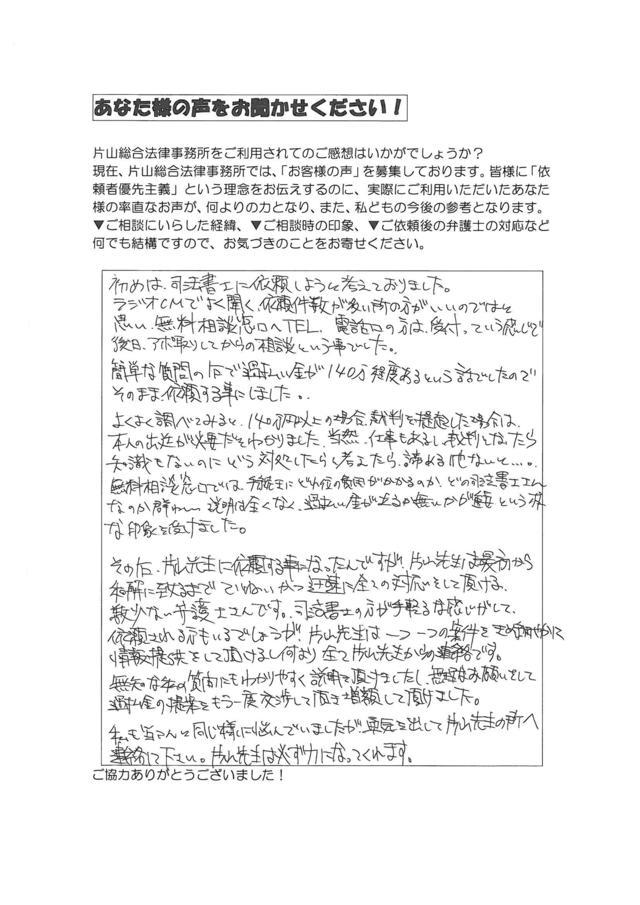 あなた様の声をお聞かせください！
片山総合法律事務所をご利用されてのご感想はいかがでしょうか？
現在、片山総合法律事務所では、「お客様の声」を募集しております。皆様に「依
頼者優先主義」という理念をお伝えするのに、実際にご利用いただいたあなた
様の率直なお声が、何よりの力となり、また、私どもの今後の参考となります。
▼ご相談にいらした経緯、▼ご相談時の印象、▼ご依頼後の弁護士の対応など
何でも結構ですので、お気づきのことをお寄せください。
初めは、司法書士に依頼しようと考えておりました。
ラジオCMでよく聞く、依頼件数が多い所の方がいいのではと
思い、無料相談窓口へTEL。電話口の方は、受付っていう感じで
後日、アポ取りしてからの相談という事でした。
簡単な質問の下で過払い金が140万程度あるという話でしたので
そのまま依頼する事にしました。
よくよく調べてみると、140万円以上の場合、裁判を提起した場合は、
本人の出廷が必要だとわかりました。当然、仕事もあるし、裁判となったら
知識もないのにどう対処したらと考えたら、諦める他ないと…。
無料相談窓口では、手続きにどれ位の費用がかかるのか、どの司法書士さん
なのか 説明は全くなく、過払い金が出るか無いかが重要 という
な印象を受けました。
その後、片山先生に依頼する事になったんですが、片山先生は最初から
和解に致るまで ていねい かつ 迅速に全ての対応をして頂ける、
数少ない弁護士さんです。司法書士の方が手軽な感じがして、
依頼される方もいるでしょうが、片山先生は一つ一つの案件を
情報提供をして頂けるし何より 全て片山先生からの連絡です。
無知な私の質問にもわかりやすく説明して頂けましたし、無理なお願いをして
過払金の提案をもう一度交渉して頂き増額して頂けました。
私も皆さんと同じ様に悩んでいましたが、勇気を出して片山先生の所へ
連絡して下さい。片山先生は必ず力になってくれます。
ご協力ありがとうございました！